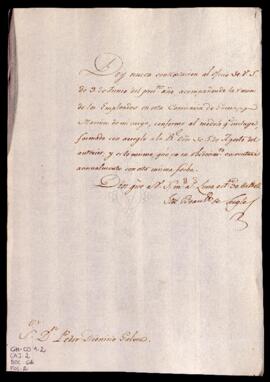 Doy nueva contextacion al oficio de V. S.
de 3 de Junio del pres.te año acompañando la razon
de los Empleados en esta Comisaria de Guerra, y
Marina de mi cargo, conforme al modelo q.e incluye,
formado con arreglo a la R.l Orn de 5 de Agosto del
anterior, y esto mismo, que en su observan.a executaré
anualmente con esta misma fecha.
Dios gue a V. S. m.s a.s Lima
S.or D.n Pedro Dionisio Galvez.
GM-CO 1-2
CAJ. 2
DOC.
FOL. 2